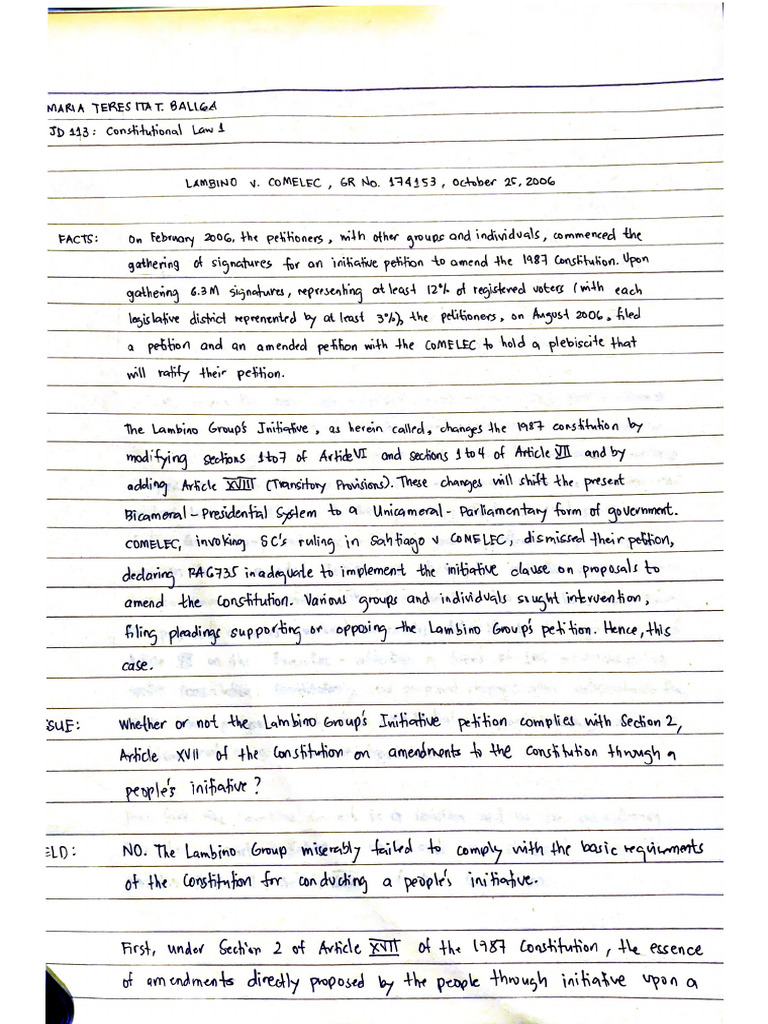 MARIA TERESITA T. BALIGA
JD 113: Constitutional Law 1
LAMBINO V. COMELEC, GR No. 174153, October 25, 2006
FACTS: On February 2006, the petitioners, with other groups and individuals, commenced the
gathering of signatures for an initiative petition to amend the 1987 Constitution. Upon
gathering 6.3M signatures, representing at least 12% of registered voters (with each
legislative district reprenented by at least 3%), the petitioners, on August 2006, filed
a petition and an amended petition with the COMELEC to hold a plebiscite that
will ratify their petition.
The Lambino Group's Initiative, as herein called, changes the 1987 constitution by
modifying sections 1 to 7 of Article VI and sections 1 to 4 of Article VII and by
adding Article XVIII (Transitory Provisions). These changes will shift the present
Bicameral-Presidential System to a Unicameral-Parliamentary form of government.
COMELEC, invoking SC's ruling in Santiago v COMELEC, dismissed their petition,
declaring RA6735 inadequate to implement the initiative clause on proposals to
amend the Constitution. Various groups and individuals sought intervention,
filing pleadings supporting or opposing the Lambino Group's petition. Hence, this
case.
SUE: Whether or not the Lambino Group's Initiative petition complies with Section 2,
Article XVII of the Constitution on amendments to the Constitution through a
people's initiative?
ELD: NO. The Lambino Group miserably failed to comply with the basic requirements
of the Constitution for conducting a people's initiative.
First, under Section 2 of Article XVII of the 1987 Constitution, the essence
of amendments directly proposed by the people through initiative upon a